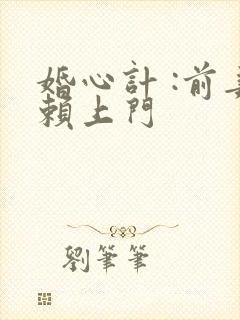 婚心計:前
賴上門
劉筆筆